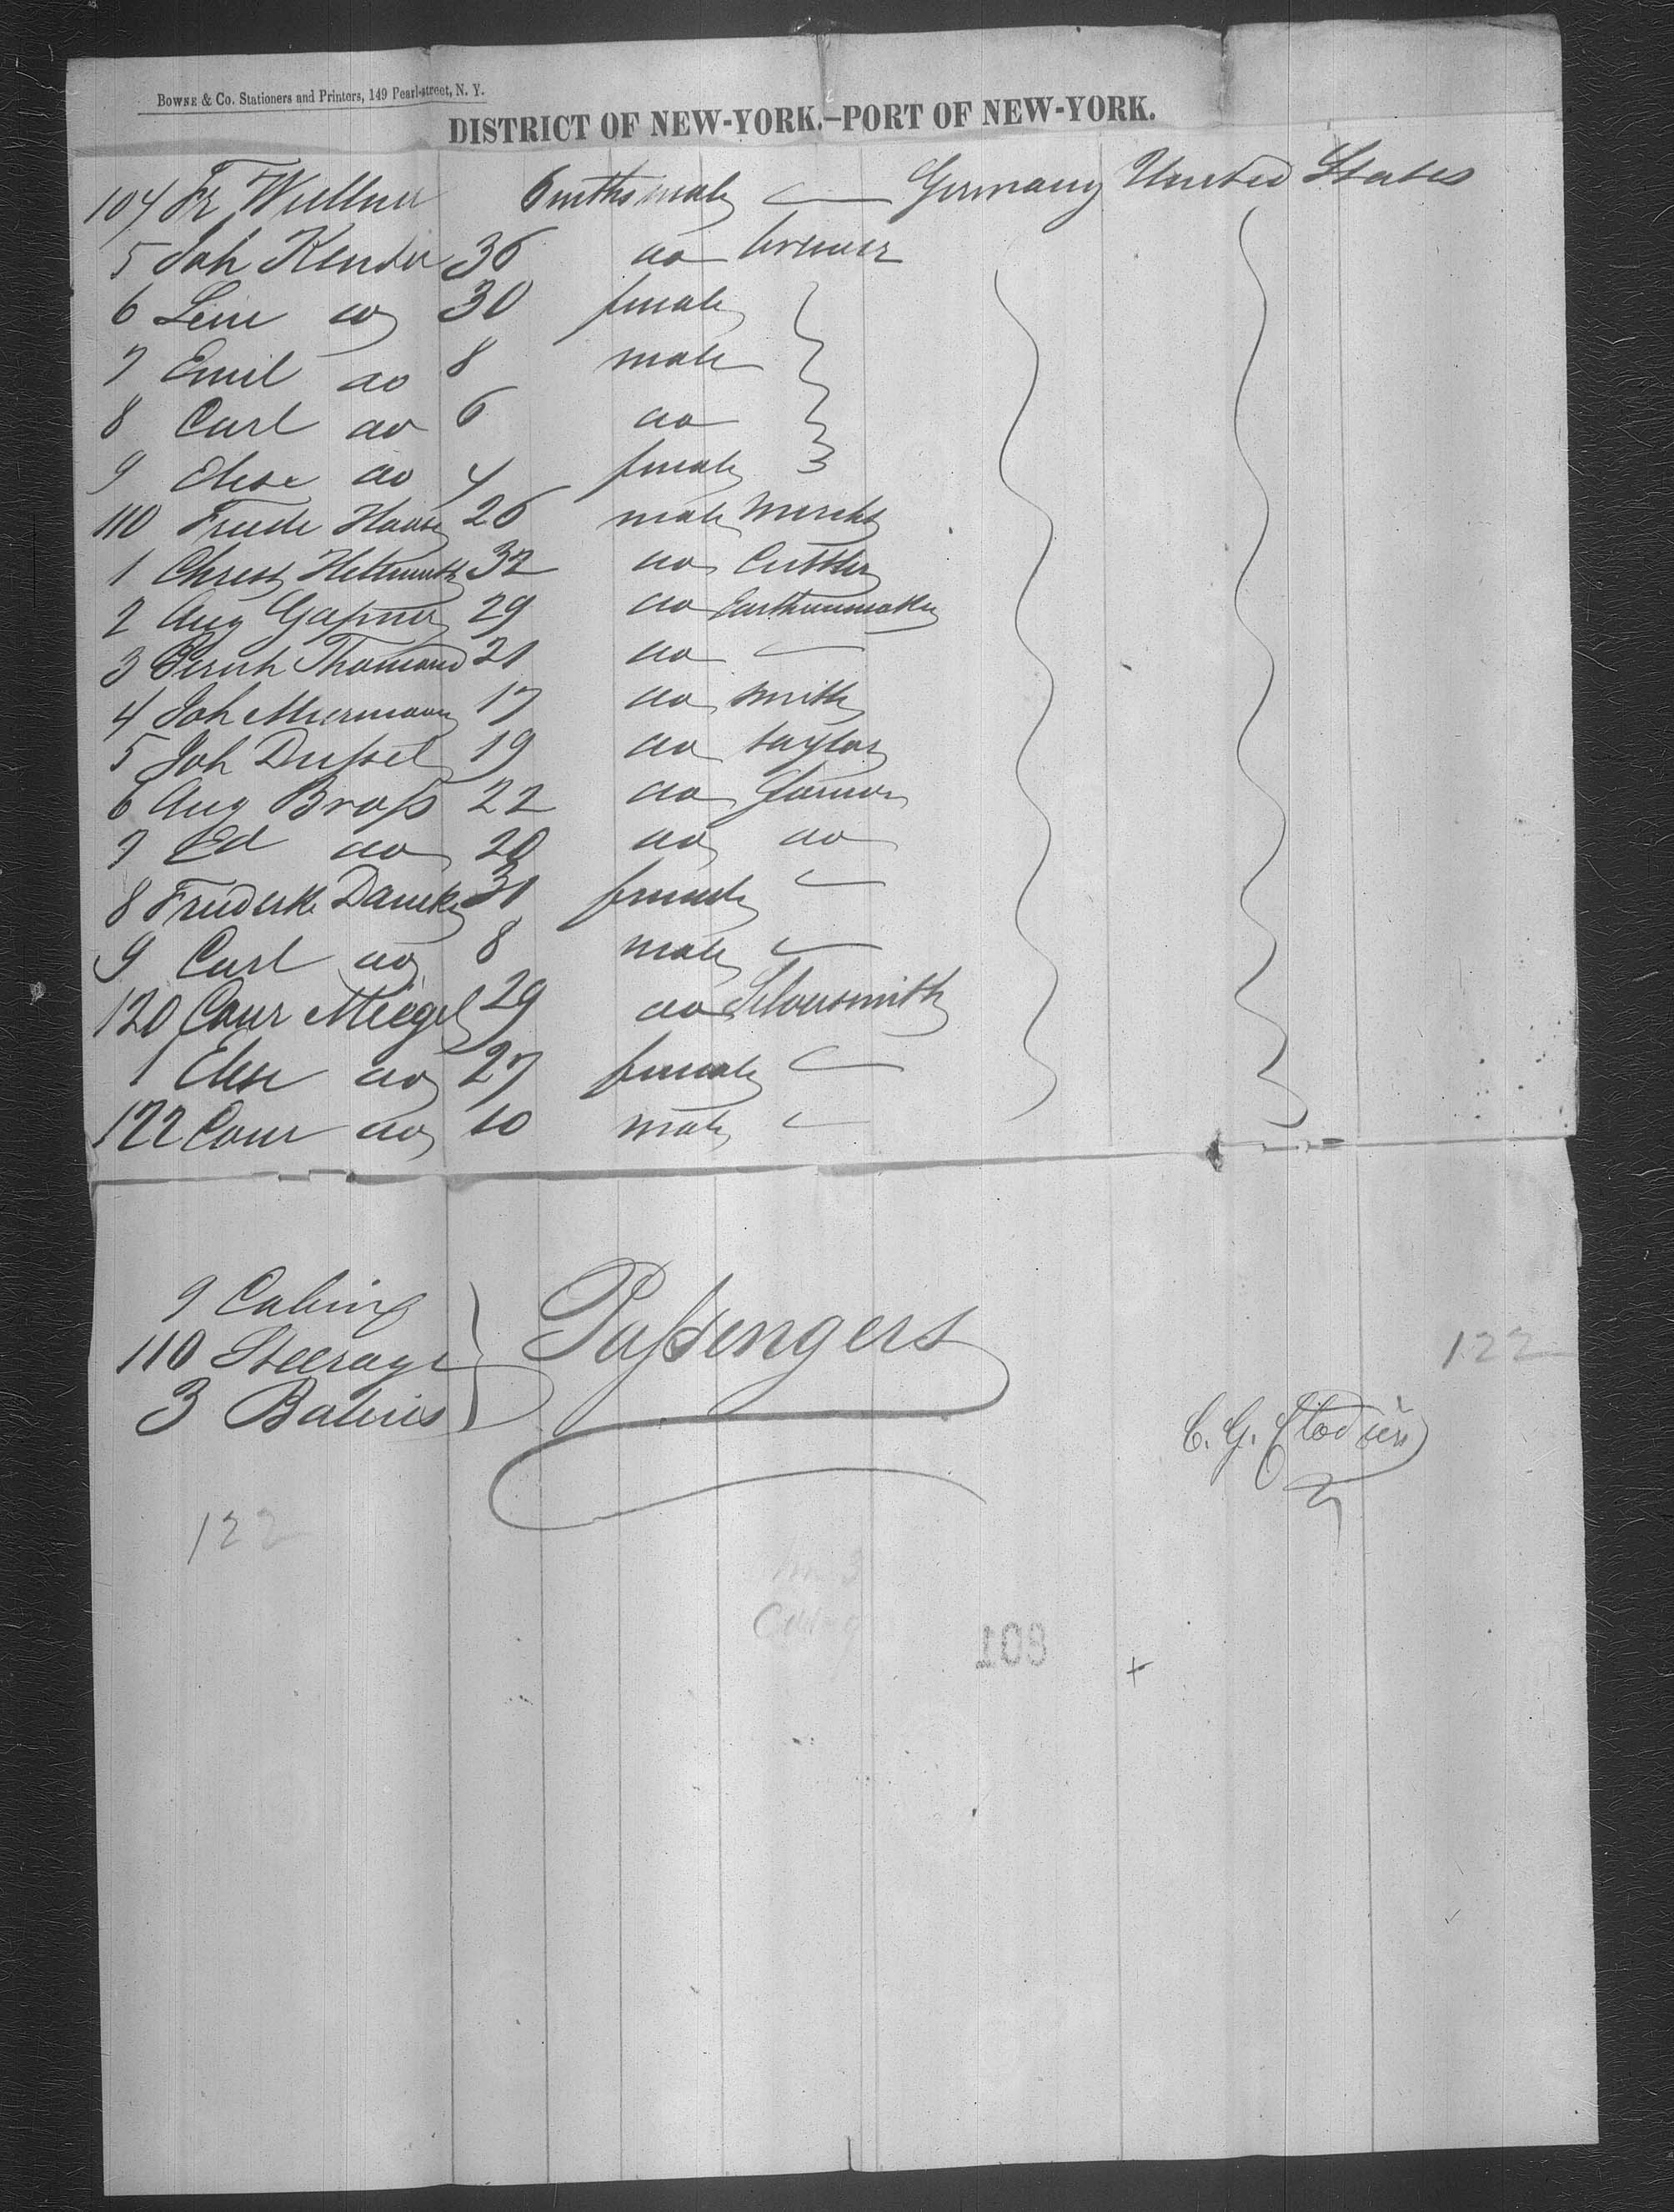 BOWNE & Co. Stationers and Printers, 149 Pearl-street, N. Y.
DISTRICT OF NEW-YORK.–PORT OF NEW-YORK.
104 Fr Wullner 6 mths male — Germany United States
5 Joh 36 do brewer
6 Line do 30 female
7 Emil do 8 male
8 Carl do 6 do
9 Elise do 4 female
110 Friede Haase 26 male Mercht
1 Christ Hellmuth 32 do Cuttler
2 Aug 29 do Earthenmaker
3 21 do —
4 Joh 17 do Smith
5 Joh Dußel 19 do taylor
6 Aug Broß 22 do farmer
7 Ed do 20 do do
8 Friederike 31 female —
9 Carl do 8 male —
120 Conr Miegel 29 do Silversmith
1 Elise do 27 female —
122 Conr do 10 male —
9 Cabin
110 Steerage
3 Babies
Paßengers
122
C. G.
122
108